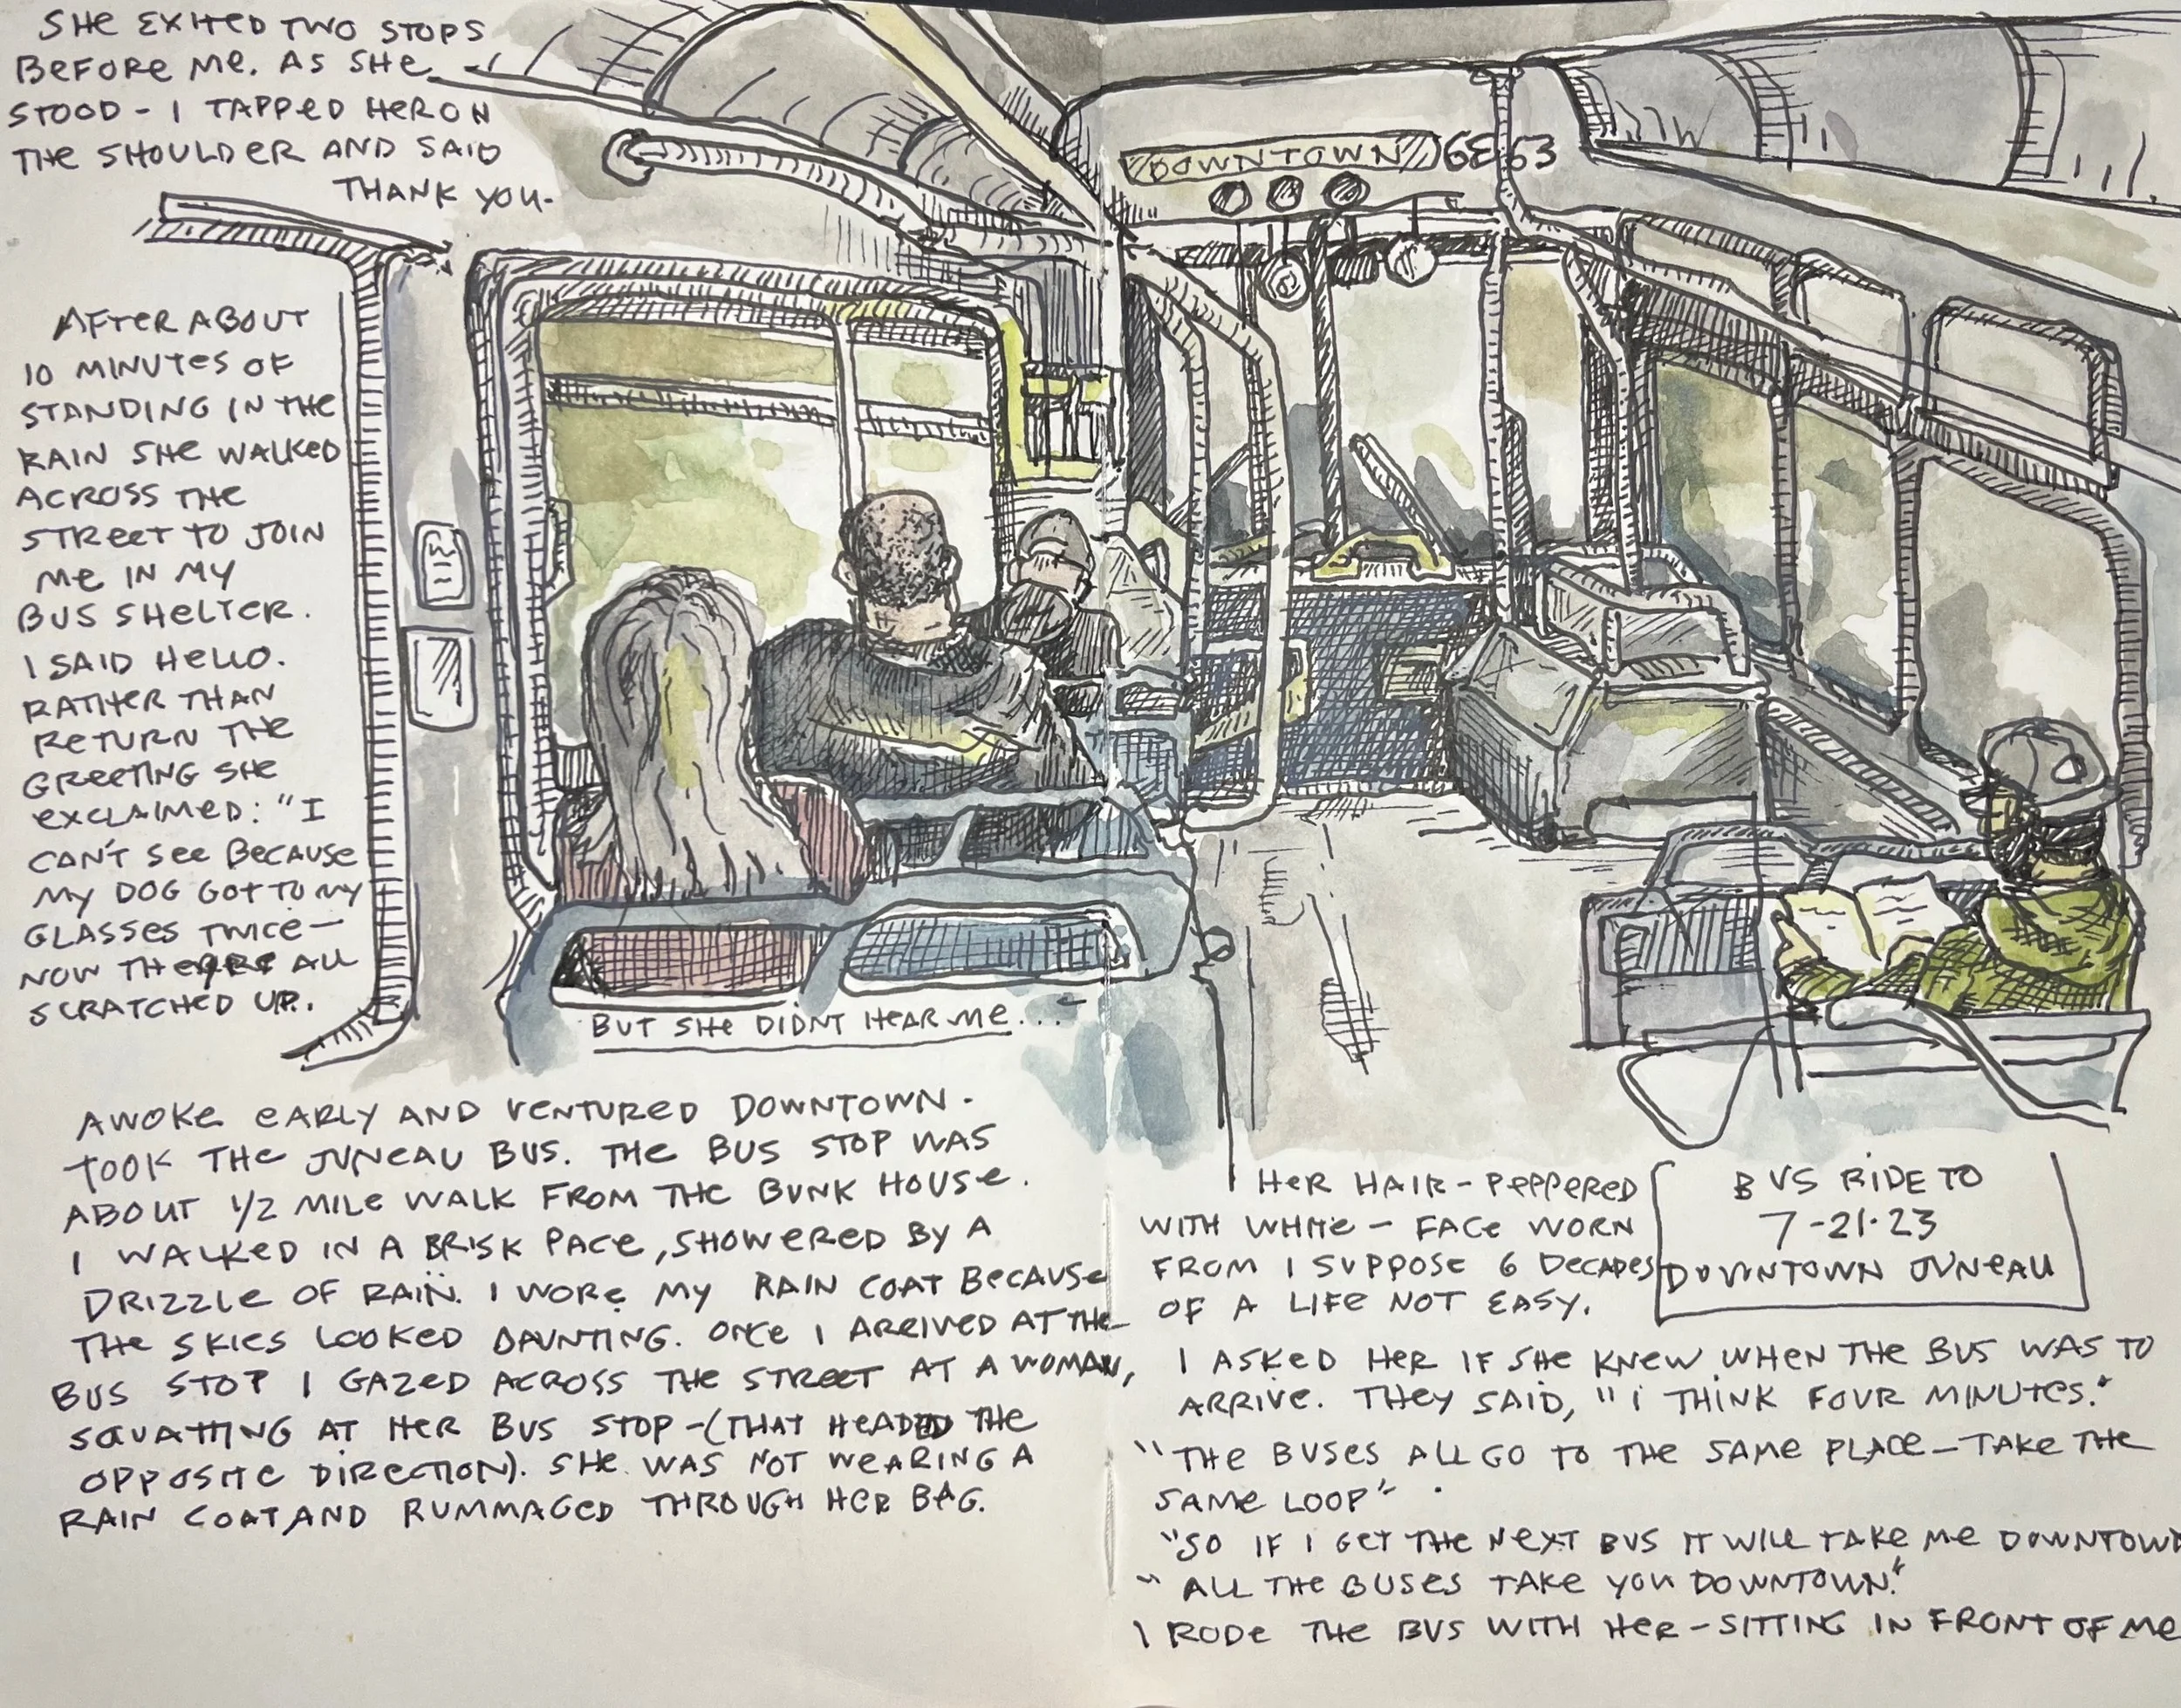 AWOKE EARLY AND VENTURED DOWNTOWN.
TOOK THE JUNEAU BUS. THE BUS STOP WAS
ABOUT 1/2 MILE WALK FROM THE BUNK HOUSE.
I WALKED IN A BRISK PACE, SHOWERED BY A
DRIZZLE OF RAIN. I WORE MY RAIN COAT BECAUSE
THE SKIES LOOKED DAUNTING. ONCE I ARRIVED AT THE
BUS STOP I GAZED ACROSS THE STREET AT A WOMAN,
SQUATTING AT HER BUS STOP-(THAT HEADED THE
OPPOSITE DIRECTION). SHE WAS NOT WEARING A
RAIN COAT, AND RUMMAGED THROUGH HER BAG.
AFTER ABOUT
10 MINUTES OF
STANDING IN THE
RAIN SHE WALKED
ACROSS THE
STREET TO JOIN
ME IN MY
BUS SHELTER.
I SAID HELLO.
RATHER THAN
RETURN THE
GREETING SHE
EXCLAIMED: "I
CAN'T SEE BECAUSE
MY DOG GOT TO MY
GLASSES TWICE—
NOW THERE ALL
SCRATCHED UP.
HER HAIR - PEPPERED
WITH WHITE - FACE WORN
FROM I SUPPOSE 6 DECADES
OF A LIFE NOT EASY.
I ASKED HER IF SHE KNEW WHEN THE BUS WAS TO
ARRIVE. THEY SAID, "I THINK FOUR MINUTES."
"THE BUSES ALL GO TO THE SAME PLACE - TAKE THE
SAME LOOP".
"SO IF I GET THE NEXT BUS IT WILL TAKE ME DOWNTOWN
"ALL THE BUSES TAKE YOU DOWNTOWN."
I RODE THE BUS WITH HER - SITTING IN FRONT OF ME
SHE EXITED TWO STOPS
BEFORE ME. AS SHE
STOOD - I TAPPED HER ON
THE SHOULDER AND SAID
THANK YOU.
BUT SHE DIDNT HEAR ME...
DOWNTOWN
BUS RIDE TO
7-21-23
DOWNTOWN JUNEAU